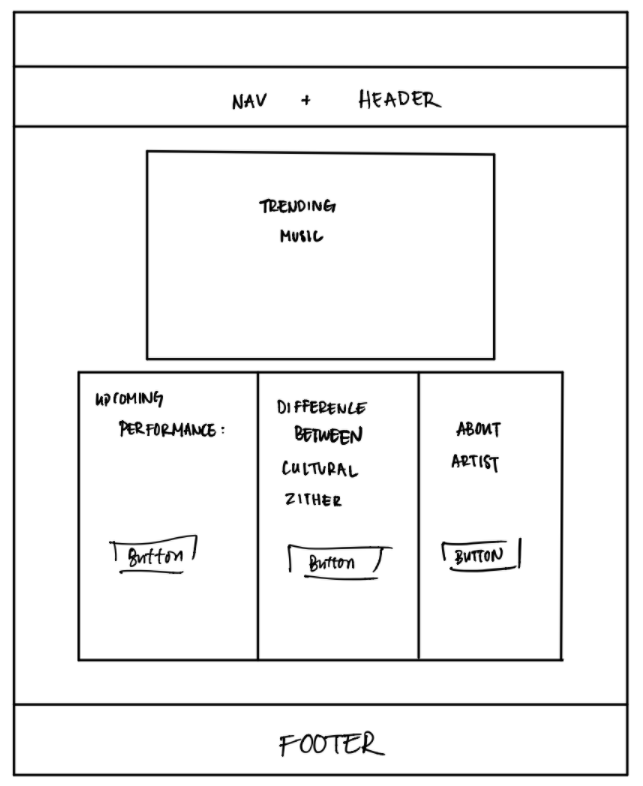 NAV + HEADER
TRENDING
MUSIC
UPCOMING
PERFORMANCE:
Button
DIFFERENCE
BETWEEN
CULTURAL
ZITHER
Button
ABOUT
ARTIST
BUTTON
FOOTER